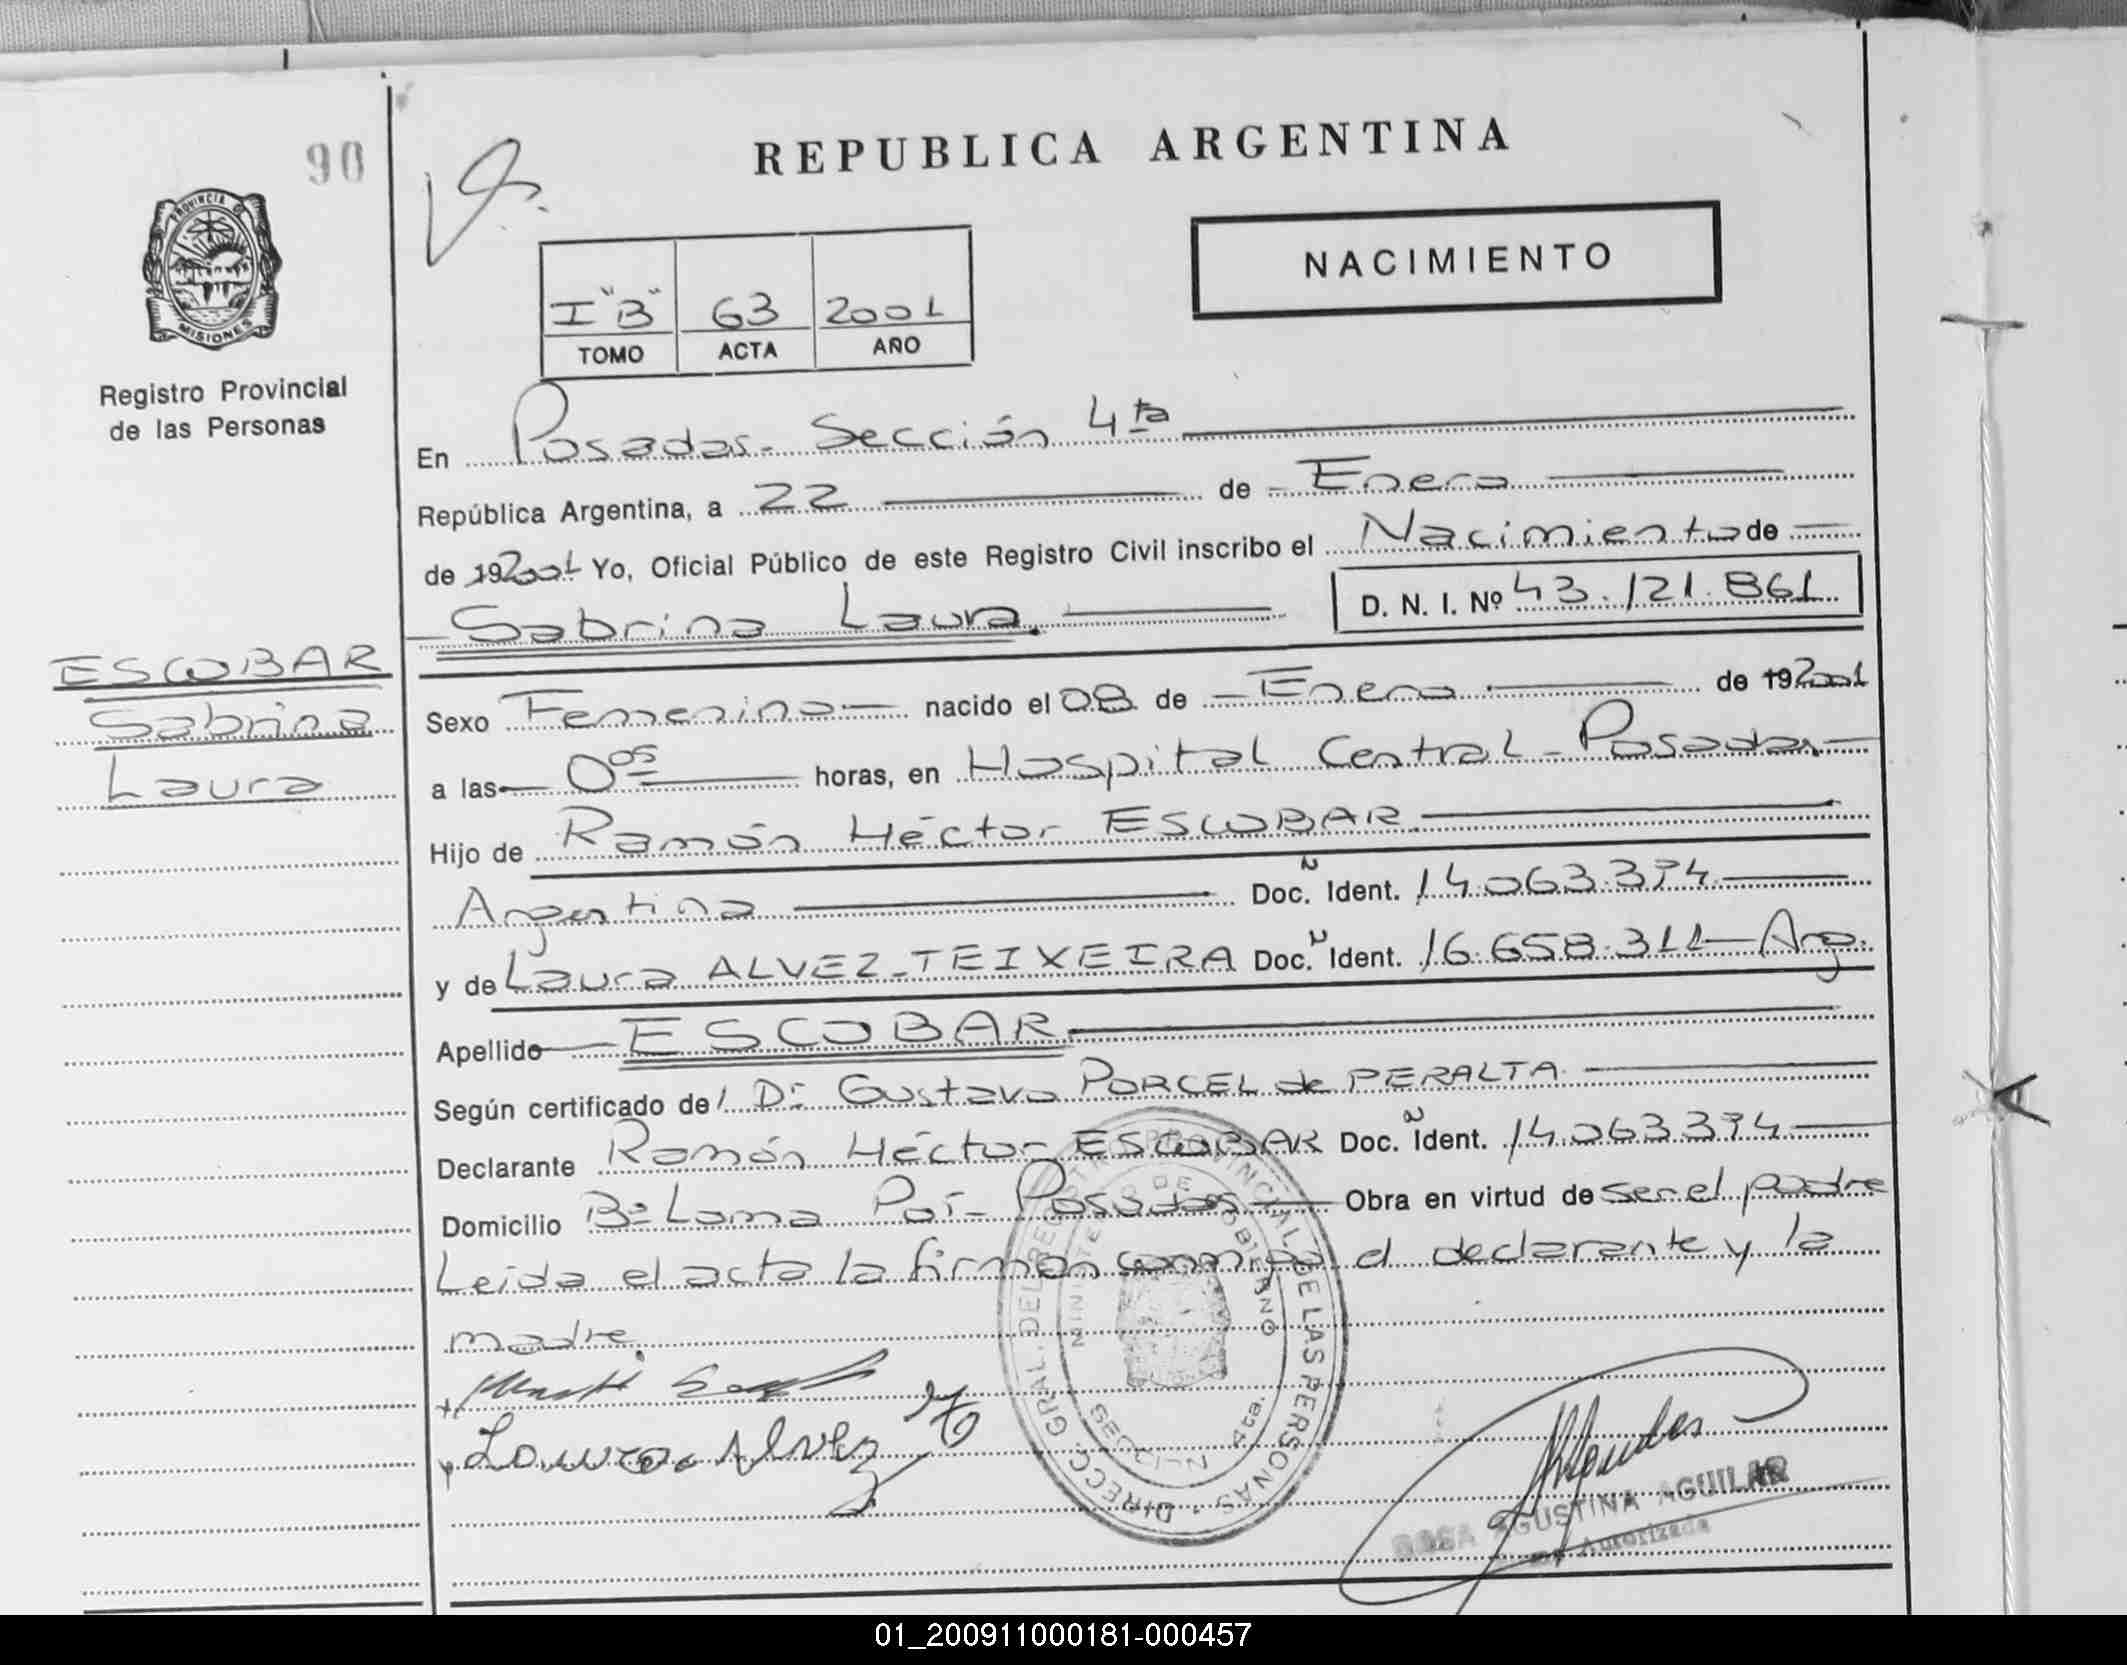 90
REPUBLICA ARGENTINA
PROVINCIA DE
MISIONES
NACIMIENTO
I "B" 63 2001
TOMO ACTA AÑO
Registro Provincial
de las Personas
En Posadas - Sección 4ta
República Argentina, a 22 de Enero
de 192001 Yo, Oficial Público de este Registro Civil inscribo el Nacimiento de
Sabrina Laura. D. N. I. Nº 43.121.861
ESCOBAR
Sabrina
Laura
Sexo Femenino nacido el 08 de Enero de 192001
a las 0 05 horas, en Hospital Central - Posadas
Hijo de Ramón Héctor ESCOBAR
Argentina Doc. Ident. 14.063.374
y de Laura ALVEZ-TEIXEIRA Doc. Ident. 16.658.311 - Arg.
Apellido ESCOBAR
Según certificado del Dr. Gustavo PORCEL de PERALTA
Declarante Ramón Héctor ESCOBAR Doc. Ident. 14.063.374
Domicilio Bº Loma Poí - Posadas Obra en virtud de ser el padre
Leida el acta la firman conmigo el declarante y la
madre
Laura Alvez
DIRECC. GRAL. DEL REGISTRO PROVINCIAL DE LAS PERSONAS
MINISTERIO DE GOBIERNO
SECCION 4ta.
ROSA AGUSTINA AGUILAR
Autorizada
01_200911000181-000457